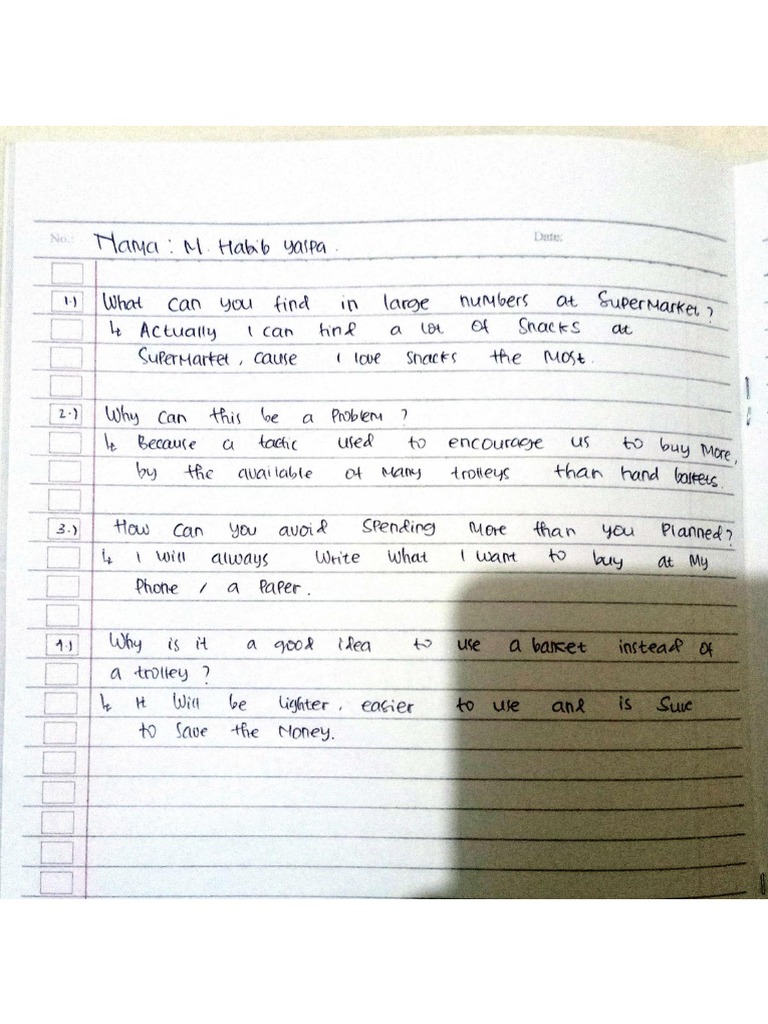 No.: Nama : M. Habib Yaspa. Date:
1.) What can you find in large numbers at Supermarket?
↳ Actually I can find a lot of snacks at
Supermarket, cause I love snacks the most.
2.) Why can this be a problem ?
↳ Because a tactic used to encourage us to buy more,
by the available of many trolleys than hand baskets.
3.) How can you avoid spending more than you planned?
↳ I will always write what I want to buy at my
phone / a paper.
4.) Why is it a good idea to use a basket instead of
a trolley ?
↳ It will be lighter, easier to use and is sure
to save the money.